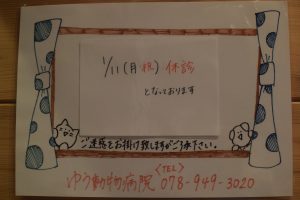 1/11(月・祝)休診
となっております
ご迷惑をお掛け致しますがご了承下さい。
<TEL>
ゆう動物病院 078-949-3020